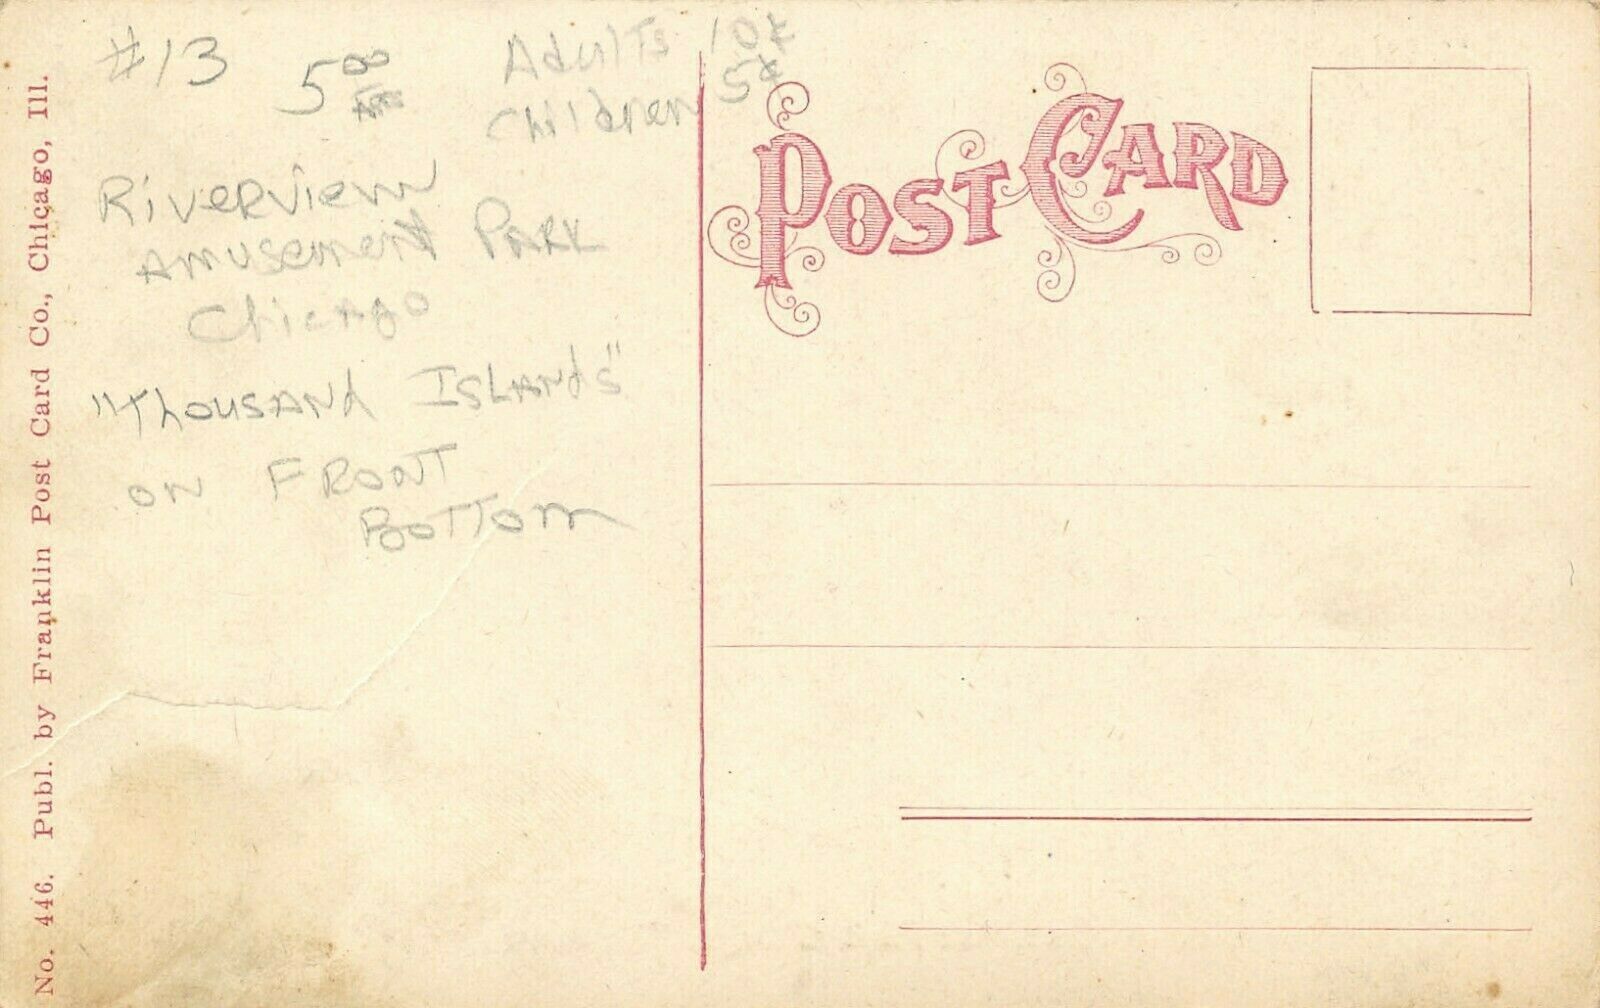 #13
5.00
Adults 10¢
Children 5¢
Riverview
Amusement Park
Chicago
"Thousand Islands"
on Front
Bottom
POST CARD
No. 446. Publ. by Franklin Post Card Co., Chicago, Ill.